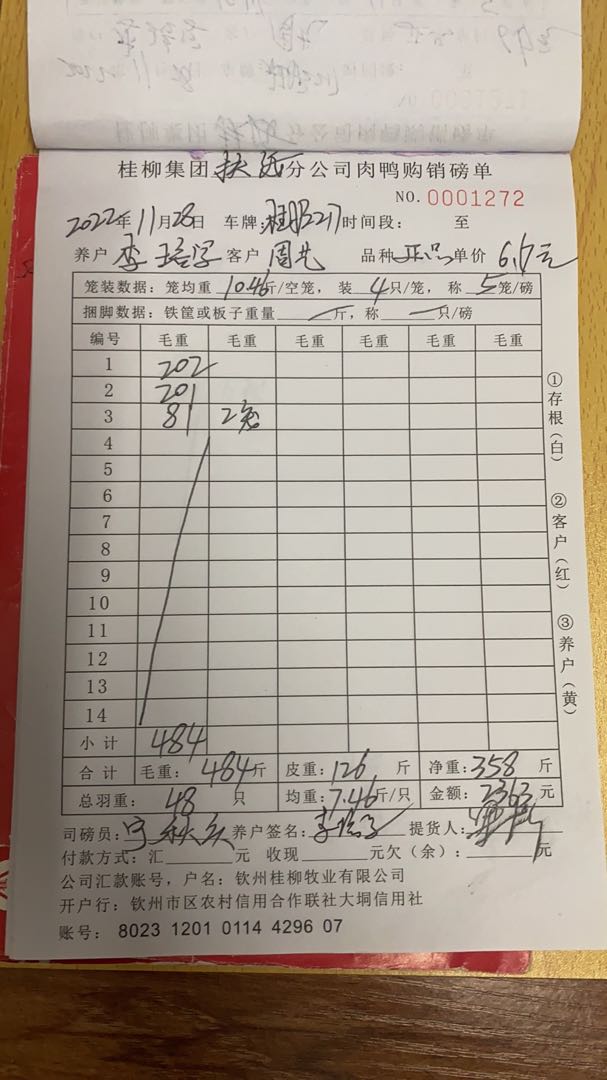 桂柳集团 分公司肉鸭购销磅单
NO. 0001272
2022年11月28日 车牌: 217 时间段: 至
养户 李 客户 周 品种 正品 单价 6.6元
笼装数据: 笼均重 10.46 斤/空笼, 装 4 只/笼, 称 5 笼/磅
捆脚数据: 铁筐或板子重量 — 斤, 称 — 只/磅
编号 毛重 毛重 毛重 毛重 毛重 毛重
1 202
2 201
3 81 2笼
4
5
6
7
8
9
10
11
12
13
14
小计 484
合计 毛重: 484斤 皮重: 126 斤 净重: 358 斤
总羽重: 48 只 均重: 7.46斤/只 金额: 2363元
司磅员: 养户签名: 李 提货人:
付款方式: 汇 元 收现 元欠(余): 元
公司汇款账号, 户名: 钦州桂柳牧业有限公司
开户行: 钦州市区农村信用合作联社大垌信用社
账号: 8023 1201 0114 4296 07
①存根(白) ②客户(红) ③养户(黄)